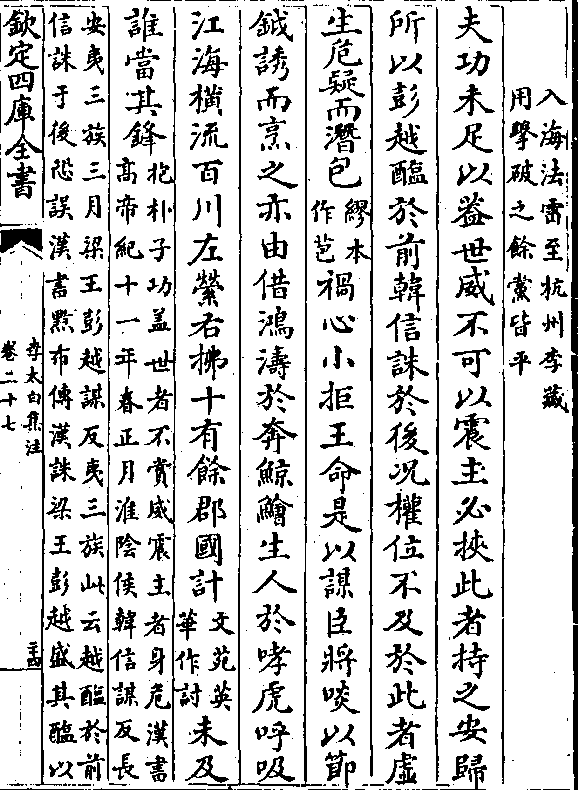 入海法雷至杭州李藏
用擊破之餘黨皆平
夫功未足以蓋世威不可以震主必挾此者持之安歸
所以彭越醢於前韓信誅於後况權位不及於此者虛
生危疑而潛包繆本作苞禍心小拒王命是以謀臣將啖以節
鉞誘而烹之亦由借鴻濤於奔鯨鱠生人於哮虎呼吸
江海橫流百川左縈右拂十有餘郡國計文苑英華作討未及
誰當其鋒抱朴子功蓋世者不賞威震主者身危漢書
高帝紀十一年春正月淮陰侯韓信謀反長
安夷三族三月梁王彭越謀反夷三族此云越醢於前
信誅于後恐誤漢書黥布傳漢誅梁王彭越盛其醢以
欽定四庫全書
李太白集注
卷二十七